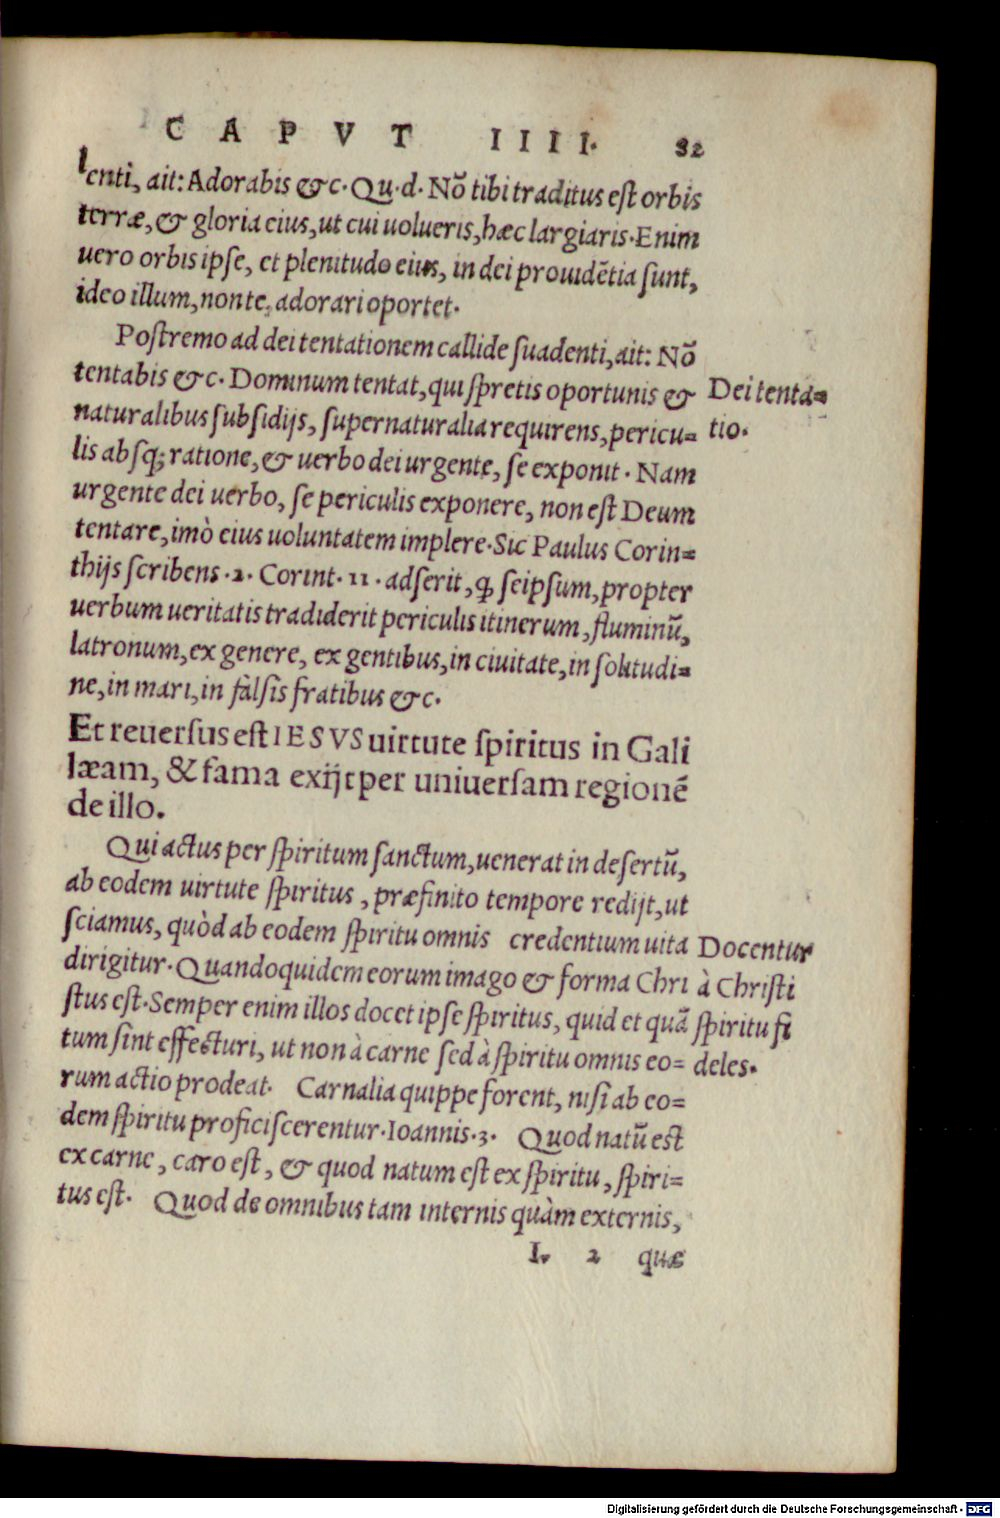 CAPVT IIII. 82
lenti, ait: Adorabis &c. Qu.d. Nõ tibi traditus est orbis
terræ, & gloria eius, ut cui uolueris, hæc largiaris. Enim
uero orbis ipse, et plenitudo eius, in dei prouidẽtia sunt,
ideo illum, non te, adorari oportet.
Postremo ad dei tentationem callide suadenti, ait: Nõ
tentabis &c. Dominum tentat, qui spretis oportunis &
naturalibus subsidijs, supernaturalia requirens, pericu=
lis absq; ratione, & uerbo dei urgente, se exponit. Nam
urgente dei uerbo, se periculis exponere, non est Deum
tentare, imò eius uoluntatem implere. Sic Paulus Corin=
thijs scribens .2. Corint. 11. adserit, ꝙ seipsum, propter
uerbum ueritatis tradiderit periculis itinerum, fluminũ,
latronum, ex genere, ex gentibus, in ciuitate, in solitudi=
ne, in mari, in falsis fratibus &c.
Dei tenta=
tio.
Et reuersus est IESVS uirtute spiritus in Gali
læam, & fama exijt per uniuersam regionẽ
de illo.
Qui actus per spiritum sanctum, uenerat in desertũ,
ab eodem uirtute spiritus, præfinito tempore redijt, ut
sciamus, quòd ab eodem spiritu omnis credentium uita
dirigitur. Quandoquidem eorum imago & forma Chri
stus est. Semper enim illos docet ipse spiritus, quid et quã
tum sint effecturi, ut non à carne sed à spiritu omnis eo=
rum actio prodeat. Carnalia quippe forent, nisi ab eo=
dem spiritu proficiscerentur. Ioannis.3. Quod natũ est
ex carne, caro est, & quod natum est ex spiritu, spiri=
tus est. Quod de omnibus tam internis quàm externis,
Docentur
à Christi
spiritu fi
deles.
L 2 quæ
Digitalisierung gefördert durch die Deutsche Forschungsgemeinschaft - DFG